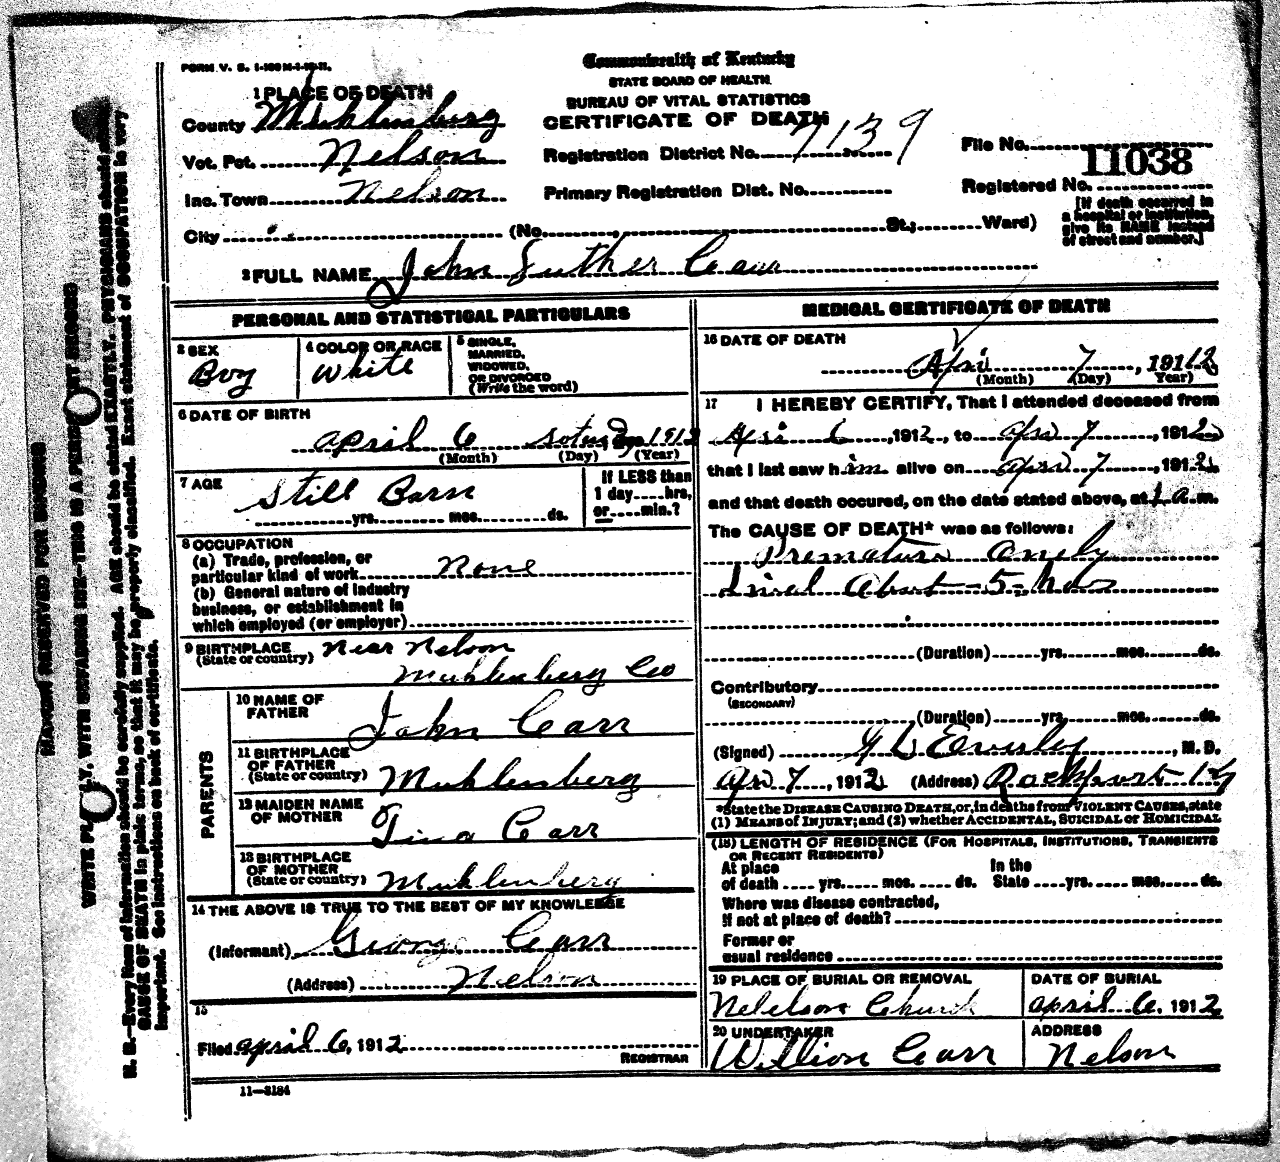 FORM V. S. 1-100 M-1-12-11.
Commonwealth of Kentucky
STATE BOARD OF HEALTH.
BUREAU OF VITAL STATISTICS
CERTIFICATE OF DEATH
1 PLACE OF DEATH
County Muhlenberg
Vot. Pct. Nelson
Inc. Town Nelson
City
Registration District No. 7139
Primary Registration Dist. No.
(No. St.; Ward)
File No.
11038
Registered No.
[If death occurred in
a hospital or institution,
give its NAME instead
of street and number.]
2 FULL NAME John Luther Carr
PERSONAL AND STATISTICAL PARTICULARS
3 SEX
Boy
4 COLOR OR RACE
White
5 SINGLE,
MARRIED,
WIDOWED,
OR DIVORCED
(Write the word)
6 DATE OF BIRTH
april 6 1912
(Month) (Day) (Year)
7 AGE
Still Born
yrs. mos. ds.
If LESS than
1 day hrs,
or min.?
8 OCCUPATION
(a) Trade, profession, or
particular kind of work None
(b) General nature of industry
business, or establishment in
which employed (or employer)
9 BIRTHPLACE
(State or country) Near Nelson
Muhlenberg Co
PARENTS
10 NAME OF
FATHER John Carr
11 BIRTHPLACE
OF FATHER
(State or country) Muhlenberg
12 MAIDEN NAME
OF MOTHER Tina Carr
13 BIRTHPLACE
OF MOTHER
(State or country) Muhlenberg
14 THE ABOVE IS TRUE TO THE BEST OF MY KNOWLEDGE
(Informant) George Carr
(Address) Nelson
15
Filed april 6, 1912
REGISTRAR
11—3184
MEDICAL CERTIFICATE OF DEATH
16 DATE OF DEATH
Apri 7, 1912
(Month) (Day) Year)
17 I HEREBY CERTIFY, That I attended deceased from
Apri 6, 1912, to apri 7, 1912
that I last saw him alive on apri 7, 1912
and that death occured, on the date stated above, at 1 a.m.
The CAUSE OF DEATH* was as follows:
Premature only
Lived About 5 hours
(Duration) yrs. mos. ds.
Contributory
(SECONDARY)
(Duration) yrs. mos. ds.
(Signed) Everly, M. D.
Apr 7, 1912 (Address) Rockport Ky
*State the DISEASE CAUSING DEATH, or, in deaths from VIOLENT CAUSES, state
(1) MEANS of INJURY; and (2) whether ACCIDENTAL, SUICIDAL or HOMICIDAL
(18) LENGTH OF RESIDENCE (FOR HOSPITALS, INSTITUTIONS, TRANSIENTS
OR RECENT RESIDENTS)
At place In the
of death yrs. mos. ds. State yrs. mos. ds.
Where was disease contracted,
if not at place of death?
Former or
usual residence
19 PLACE OF BURIAL OR REMOVAL
Nelelson Church
DATE OF BURIAL
april 6, 1912
20 UNDERTAKER
Willion Carr
ADDRESS
Nelson
MARGIN RESERVED FOR BINDING
WRITE PLAINLY, WITH UNFADING INK—THIS IS A PERMANENT RECORD
N. B.—Every item of information should be carefully supplied. AGE should be stated EXACTLY. PHYSICIANS should state
CAUSE OF DEATH in plain terms, so that it may be properly classified. Exact statement of OCCUPATION is very
important. See instructions on back of certificate.